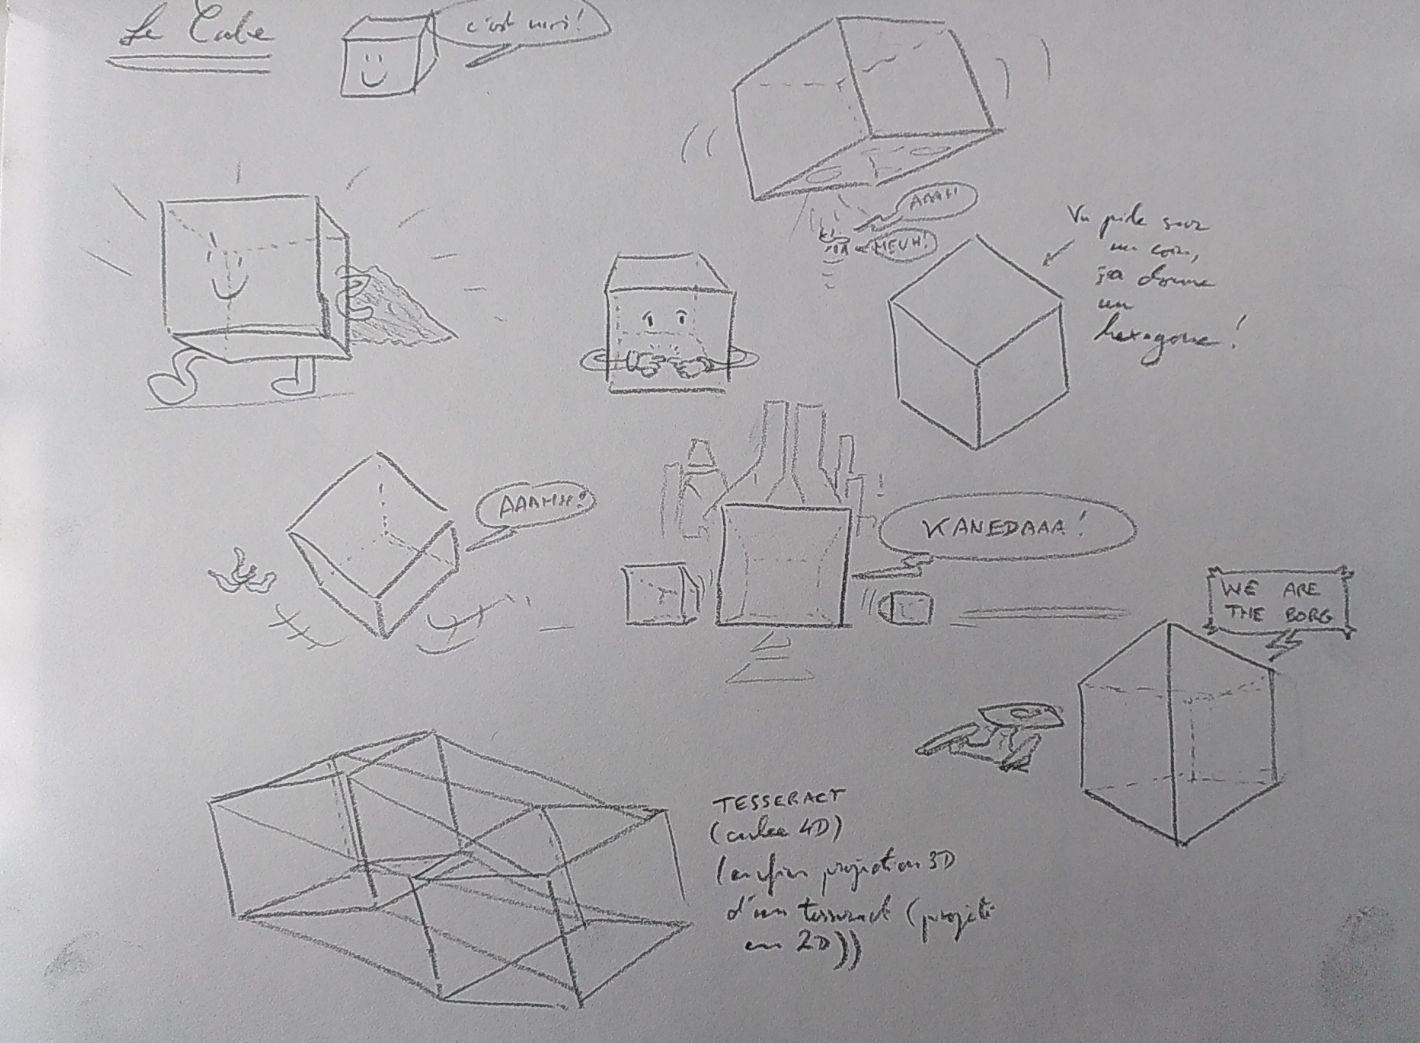 Le Cube
c'est moi!
AAAH
MEUH!
Vu pile sur
un coin,
ça donne
un
hexagone!
AAAHH!
KANEDAAA!
WE ARE
THE BORG
TESSERACT
(cube 4D)
(enfin projection 3D
d'un tesseract (projeté
en 2D))